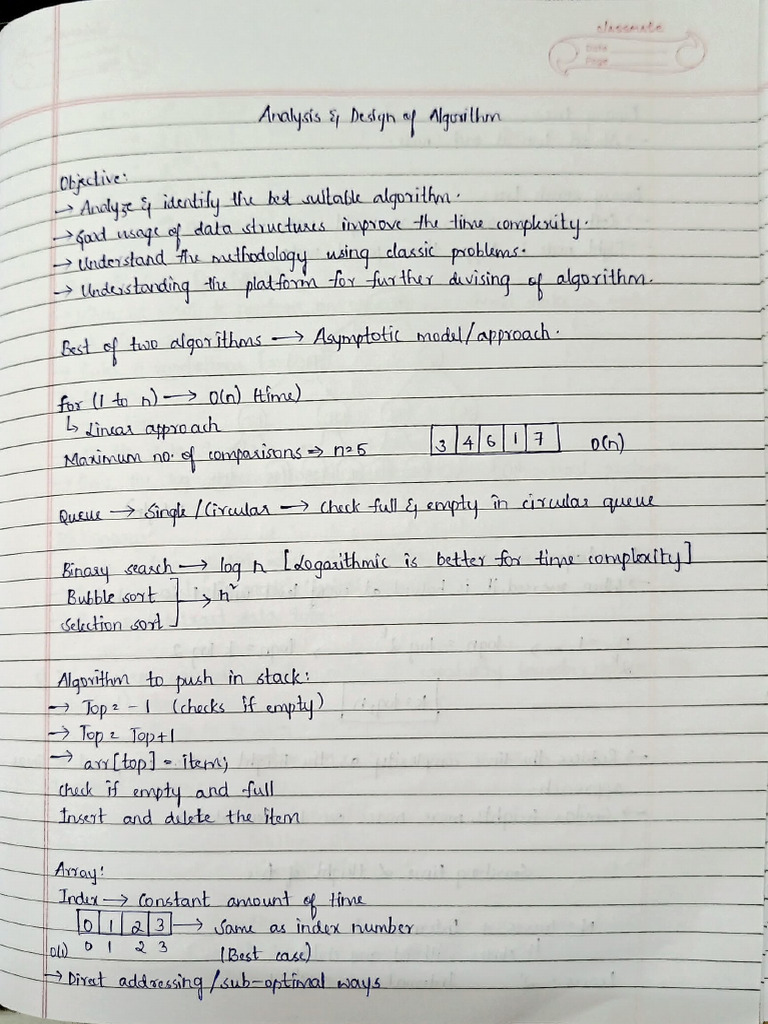 classmate
Date
Page
Analysis & Design of Algorithm
Objective:
→ Analyze & identify the best suitable algorithm.
→ Good usage of data structures improve the time complexity.
→ Understand the methodology using classic problems.
→ Understanding the platform for further divising of algorithm.
Best of two algorithms → Asymptotic model/approach.
for (1 to n) → O(n) (time)
↳ Linear approach
Maximum no. of comparisons ⇒ n=5 3 4 6 1 7 O(n)
Queue → Single/Circular → Check full & empty in circular queue
Binary search → log n [Logarithmic is better for time complexity]
Bubble sort
→ n²
Selection sort
Algorithm to push in stack:
→ Top = -1 (checks if empty)
→ Top = Top+1
→ arr[top] = item;
Check if empty and full
Insert and delete the item
Array:
Index → Constant amount of time
0 1 2 3 → Same as index number
O(1) 0 1 2 3 (Best case)
→ Direct addressing/sub-optimal ways